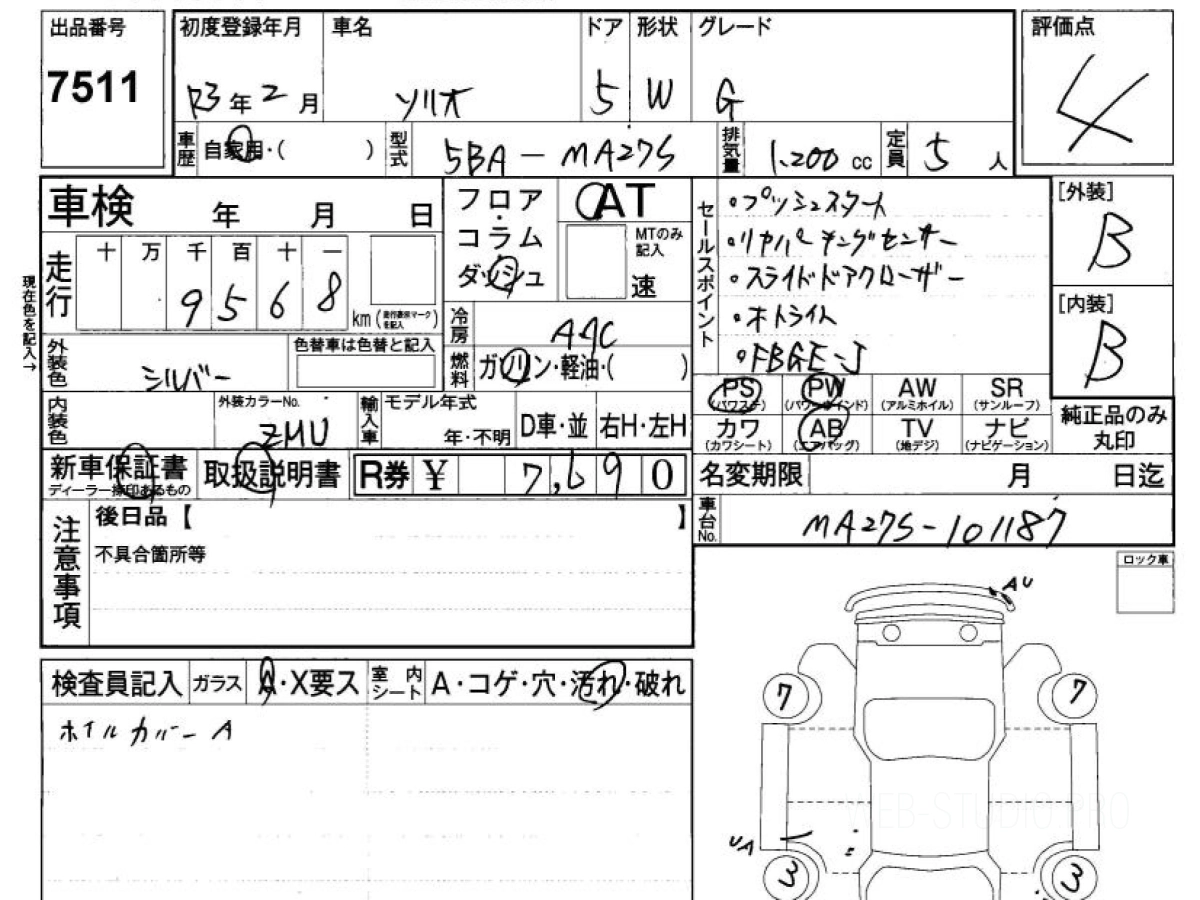 出品番号 初度登録年月 車名 ドア 形状 グレード 評価点
7511 R3年2月 ソリオ 5 W G 4
車歴 自家用・( ) 型式 5BA-MA27S 排気量 1,200 cc 定員 5 人
車検 年 月 日
フロア・コラム ダッシュ
AT
MTのみ記入
速
セールスポイント
・プッシュスタート
・リヤパーキングセンサー
・スライドドアクローザー
・オートライト
・FBGE-J
[外装]
B
[内装]
B
現在色を記入→
走行 十 万 千 百 十 一
9568 km(走行表示マークを記入)
冷房 AAC
燃料 ガソリン・軽油・( )
外装色 シルバー 色替車は色替と記入
内装色 外装カラーNo. ZMU
輸入車 モデル年式 年・不明 D車・並 右H・左H
PS (パワステ) PW (パワーウインド) AW (アルミホイル) SR (サンルーフ)
カワ (カワシート) AB (エアバッグ) TV (地デジ) ナビ (ナビゲーション)
純正品のみ丸印
新車保証書 ディーラー捺印あるもの 取扱説明書 R券 ¥ 7,690
名変期限 月 日迄
車台No. MA27S-101187
注意事項
後日品【 】
不具合箇所等
ロック車
検査員記入 ガラス A・X要ス 室内シート A・コゲ・穴・汚れ・破れ
ホイルカバー A
AU
7 7
UA
3 3
WEB-STUDIO.PRO